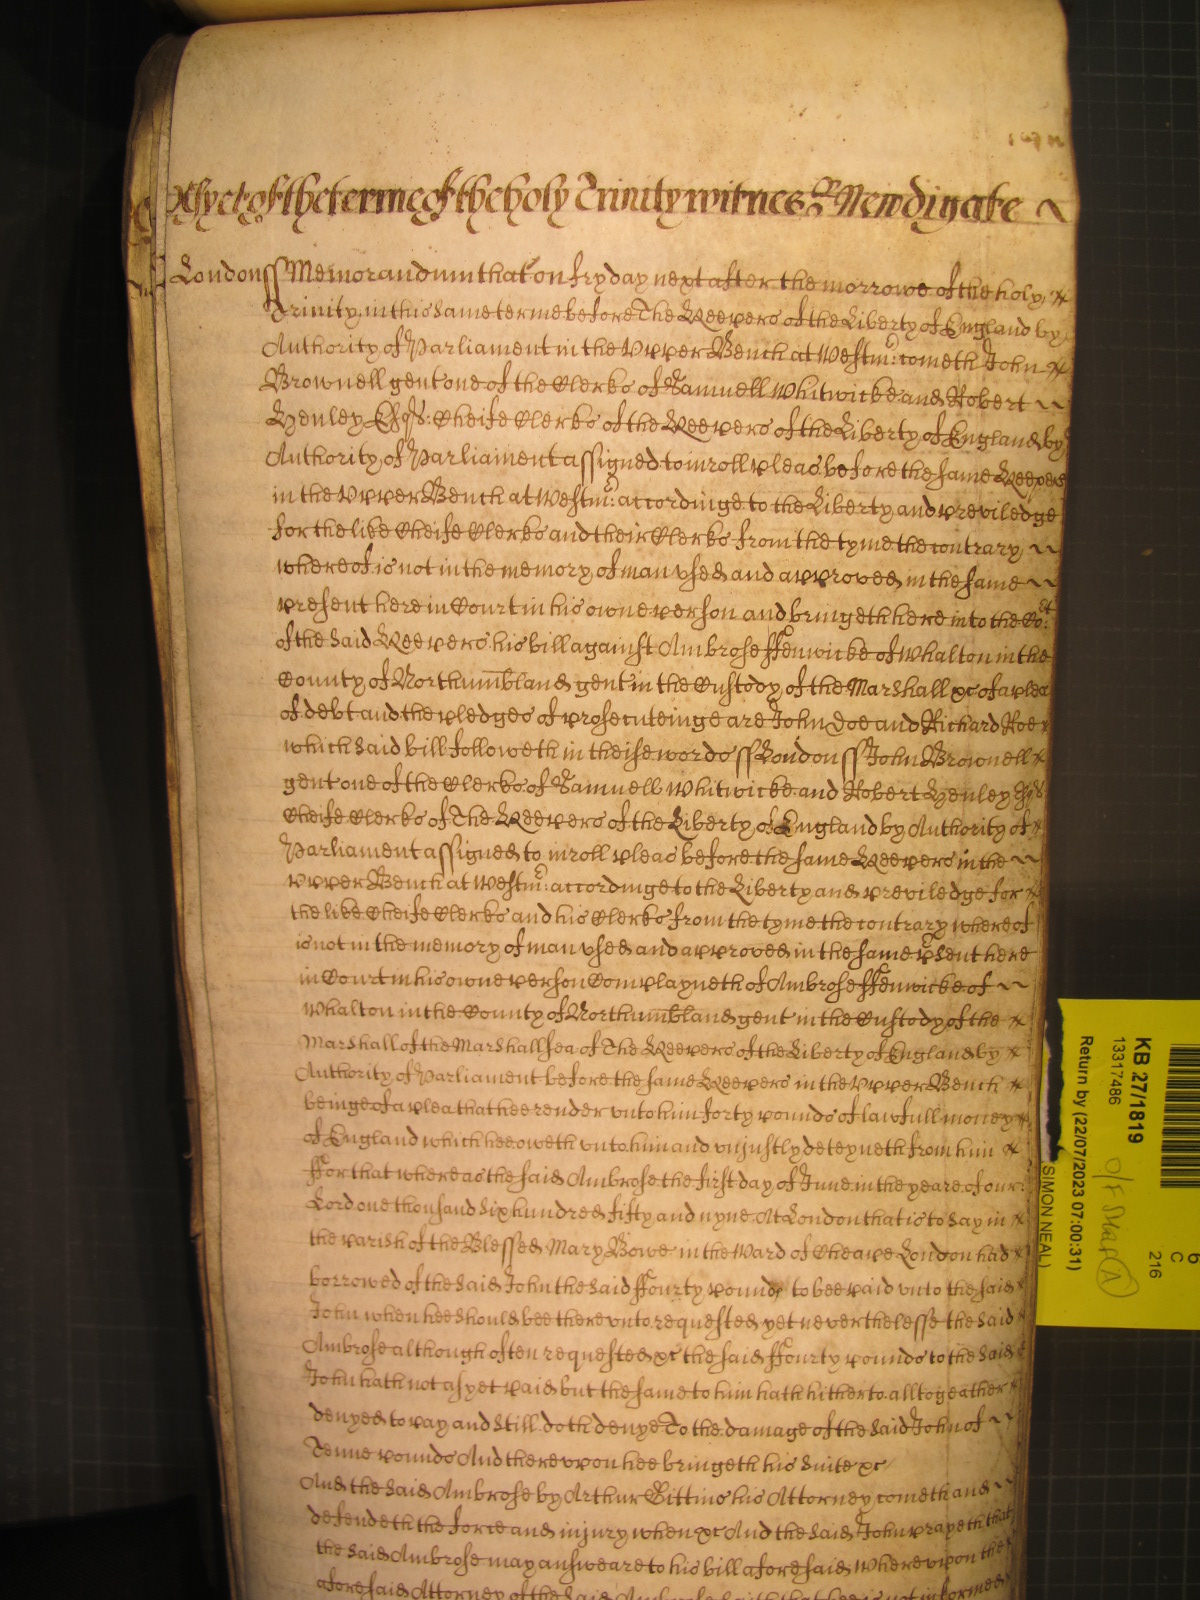 As yet of the terme of the holy Trinity witnes R Newdigate
London ss Memorandum that on fryday next after the morrowe of the holy
Trinity in this same terme before The Keepers of the Liberty of England by
Authority of Parliament in the Upper Bench at Westm: cometh John
Brownell gent one of the Clerks of Samuell Whitwicke and Robert
Henley Esqs: Cheife Clerks of the Keepers of the Liberty of England by
Authority of Parliament assigned to inroll pleas before the same Keepers
in the Upper Bench at Westm: accordinge to the Liberty and previledge
for the like Cheife Clerks and their Clerks from the tyme the contrary
whereof is not in the memory of man used and approved in the same
present here in Court in his owne person and bringeth here into the Cort
of the said Keepers his bill against Ambrose ffenwicke of Whalton in the
County of Northumbland gent in the Custody of the Marshall &c of a plea
of debt and the pledges of prosecuteinge are John Doe and Richard Roe
which said bill followeth in theise words ss London ss John Brownell
gent one of the Clerks of Samuell Whitwicke and Robert Henley Esqs
Cheife Clerks of The Keepers of the Liberty of England by Authority of
Parliament assigned to inroll pleas before the same Keepers in the
Upper Bench at Westm: accordinge to the Liberty and previledge for
the like Cheife Clerks and his Clerks from the tyme the contrary whereof
is not in the memory of man used and approved in the same psent here
in Court in his owne person Complayneth of Ambrose ffenwicke of
Whalton in the County of Northumbland gent in the Custody of the
Marshall of the Marshallsea of The Keepers of the Liberty of England by
Authority of Parliament before the same Keepers in the Upper Bench
beinge of a plea that hee render unto him forty pounds of lawfull money
of England which hee oweth unto him and unjustly deteyneth from him
ffor that whereas the said Ambrose the first day of June in the yeare of our
Lord one thousand six hundred fifty and nyne At London that is to say in
the parish of the Blessed Mary Bowe in the Ward of Cheape London had
borrowed of the said John the said ffourty pounds to bee paid unto the said
John when hee should bee thereunto requested yet neverthelesse the said
Ambrose although often requested &c the said ffourty pounds to the said
John hath not as yet paid but the same to him hath hitherto altogeather
denyed to pay and still doth denye To the damage of the said John of
Tenne pounds And thereupon hee bringeth his suite &c
And the said Ambrose by Arthur Gittins his Attorney cometh and
defendeth the force and injury when &c And the said John prayeth that
the said Ambrose may answeare to his bill aforesaid Whereupon the
aforesaid Attorney of the said Ambrose saith that hee is not informed
KB 27/1819
13317486
Return by (22/07/2023 07:00:31)
SIMON NEAL)
216
C
6